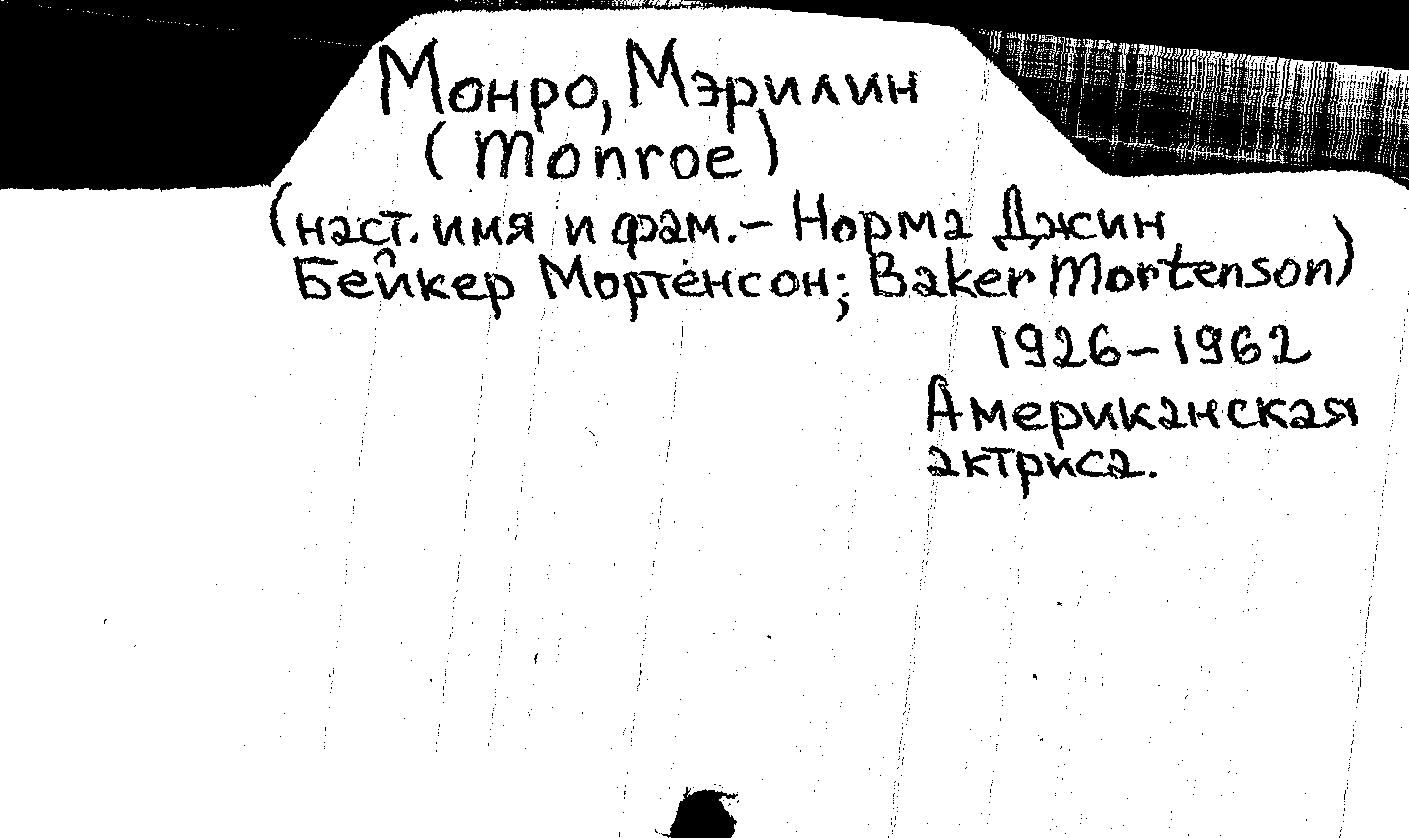 Монро, Мэрилин
(Monroe)
(наст. имя и фам. – Норма Джин
Бейкер Мортенсон; Baker Mortenson)
1926–1962
Американская
актриса.